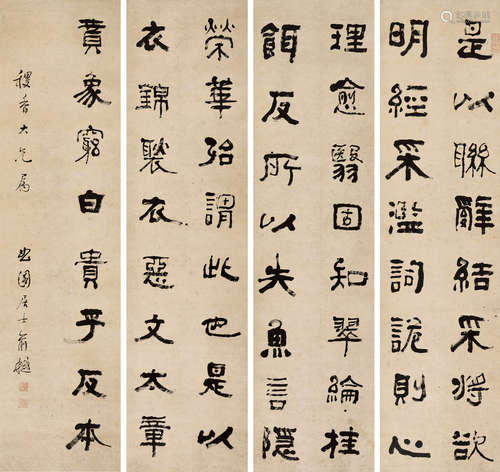 是以聯辭結采將欲
明經采濫詞詭則心
理愈翳固知翠綸桂
餌反所以失魚言隱
榮華殆謂此也是以
衣錦褧衣惡文太章
賁象窮白貴乎反本
香大兄属
曲園居士俞樾